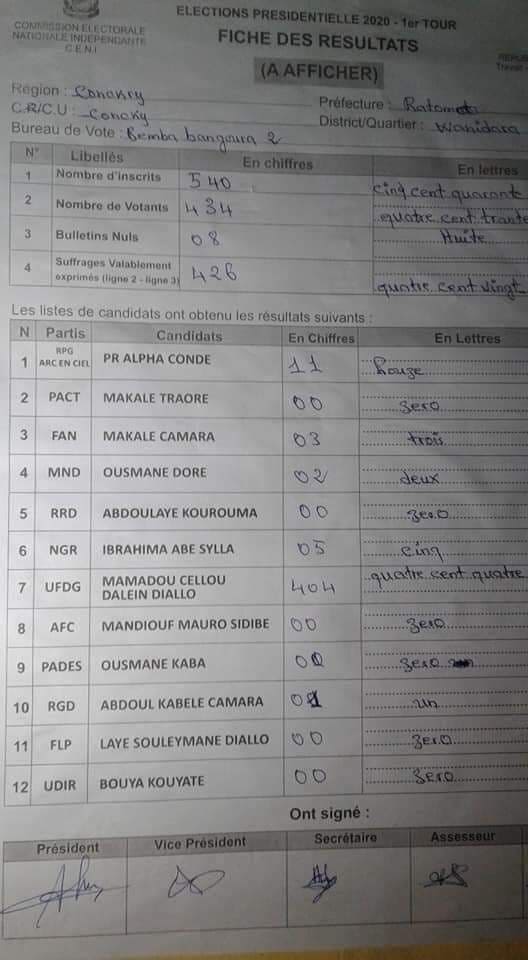 COMMISSION ELECTORALE
NATIONALE INDEPENDANTE
C.E.N.I
ELECTIONS PRESIDENTIELLE 2020 - 1er TOUR
FICHE DES RESULTATS
(A AFFICHER)
Région : Conakry
Préfecture : Ratoma
C.R/C.U : Conakry
District/Quartier : Wanidara
Bureau de Vote : Bemba bangoura 2
N° Libellés En chiffres En lettres
1 Nombre d'inscrits 540 cinq cent quarante
2 Nombre de Votants 434 quatre cent trante
3 Bulletins Nuls 08 Huite
4 Suffrages Valablement exprimés (ligne 2 - ligne 3) 426 quatre cent vingt
Les listes de candidats ont obtenu les résultats suivants :
N Partis Candidats En Chiffres En Lettres
1 RPG ARC EN CIEL PR ALPHA CONDE 11
2 PACT MAKALE TRAORE 00 zero
3 FAN MAKALE CAMARA 03 trois
4 MND OUSMANE DORE 02 deux
5 RRD ABDOULAYE KOUROUMA 00 zero
6 NGR IBRAHIMA ABE SYLLA 05 cinq
7 UFDG MAMADOU CELLOU DALEIN DIALLO 404 quatre cent quatre
8 AFC MANDIOUF MAURO SIDIBE 00 zero
9 PADES OUSMANE KABA 00 zero
10 RGD ABDOUL KABELE CAMARA 01 un
11 FLP LAYE SOULEYMANE DIALLO 00 zero
12 UDIR BOUYA KOUYATE 00 zero
Ont signé :
Président Vice Président Secrétaire Assesseur